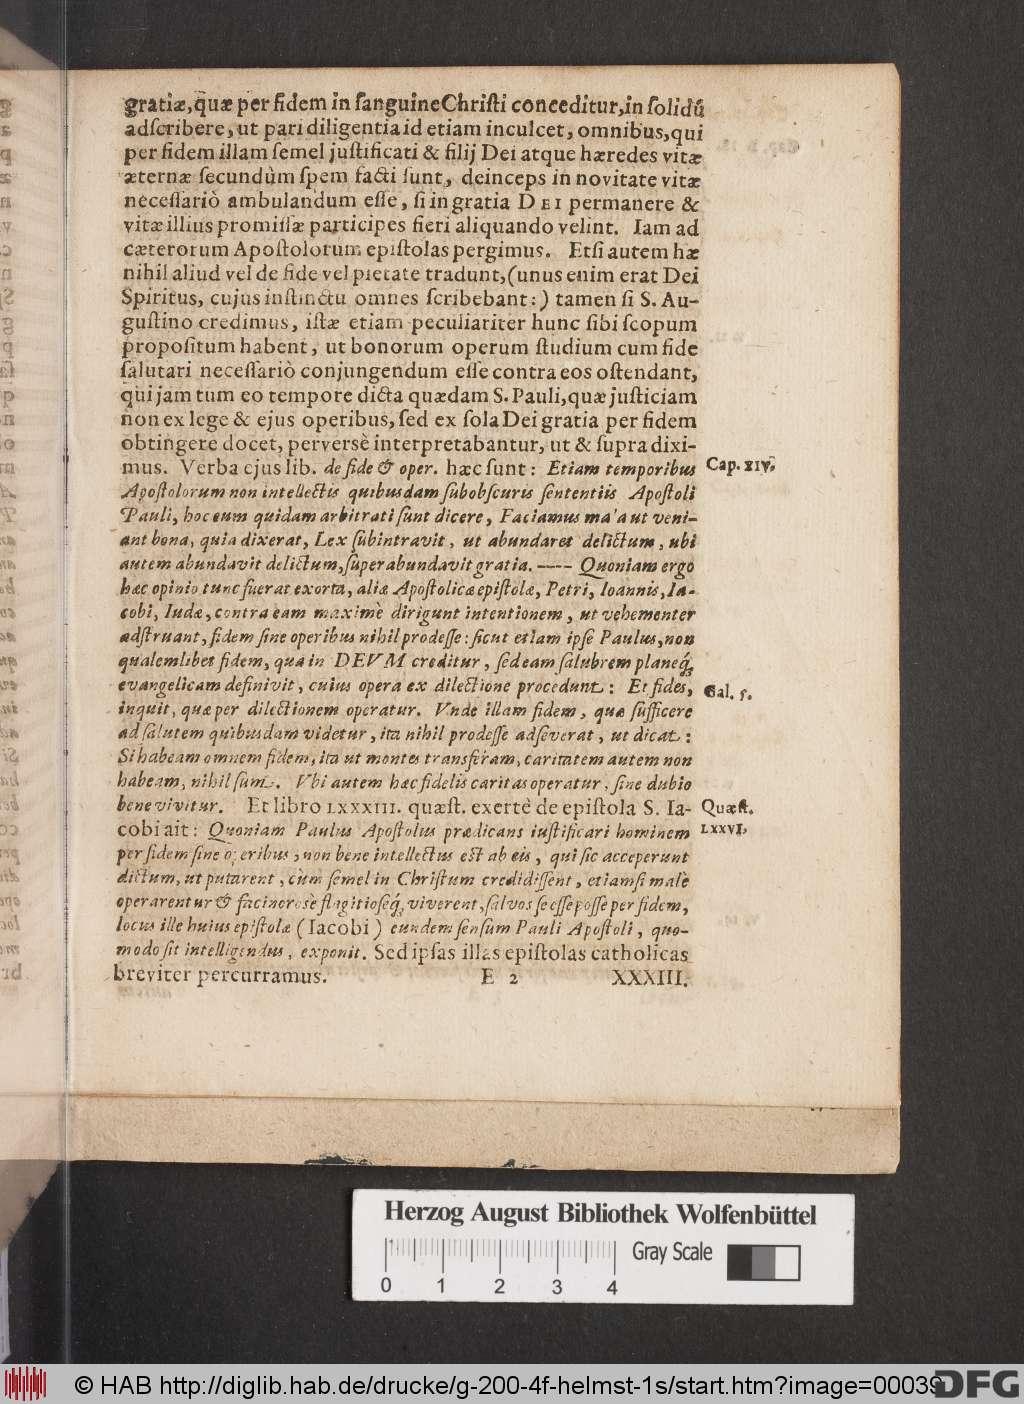 gratiæ, quæ per fidem in sanguine Christi conceditur, in solidũ
adscribere, ut pari diligentia id etiam inculcet, omnibus, qui
per fidem illam semel justificati & filij Dei atque hæredes vitæ
æternæ secundùm spem facti sunt, deinceps in novitate vitæ
necessariò ambulandum esse, si in gratia DEI permanere &
vitæ illius promissæ participes fieri aliquando velint. Iam ad
cæterorum Apostolorum epistolas pergimus. Etsi autem hæ
nihil aliud vel de fide vel pietate tradunt, (unus enim erat Dei
Spiritus, cujus instinctu omnes scribebant:) tamen si S. Au-
gustino credimus, istæ etiam peculiariter hunc sibi scopum
propositum habent, ut bonorum operum studium cum fide
salutari necessariò conjungendum esse contra eos ostendant,
qui jam tum eo tempore dicta quædam S. Pauli, quæ justiciam
non ex lege & ejus operibus, sed ex sola Dei gratia per fidem
obtingere docet, perversè interpretabantur, ut & supra dixi-
mus. Verba ejus lib. de fide & oper. hæc sunt: Etiam temporibus
Cap. XIV.
Apostolorum non intellectis quibusdam subobscuris sententiis Apostoli
Pauli, hoc eum quidam arbitrati sunt dicere, Faciamus mala ut veni-
ant bona, quia dixerat, Lex subintravit, ut abundaret delictum, ubi
autem abundavit delictum, superabundavit gratia. ---- Quoniam ergo
hæc opinio tunc fuerat exorta, aliæ Apostolicæ epistolæ, Petri, Ioannis, Ia-
cobi, Iudæ, contra eam maximè dirigunt intentionem, ut vehementer
adstruant, fidem sine operibus nihil prodesse: sicut etiam ipse Paulus, non
qualemlibet fidem, qua in DEVM creditur, sed eam salubrem planeq́;
evangelicam definivit, cuius opera ex dilectione procedunt: Et fides,
Gal. 5.
inquit, quæ per dilectionem operatur. Vnde illam fidem, quæ sufficere
ad salutem quibusdam videtur, ita nihil prodesse adseverat, ut dicat:
Si habeam omnem fidem, ita ut montes transferam, caritatem autem non
habeam, nihil sum. Vbi autem hæc fidelis caritas operatur, sine dubio
bene vivitur. Et libro LXXXIII. quæst. exertè de epistola S. Ia-
Quæst.
cobi ait: Quoniam Paulus Apostolus prædicans iustificari hominem
LXXVI.
per fidem sine operibus, non bene intellectus est ab eis, qui sic acceperunt
dictum, ut putarent, cùm semel in Christum credidissent, etiamsi male
operarentur & facinorosè flagitioseq́; viverent, salvos se esse posse per fidem,
locus ille huius epistolæ (Iacobi) eundem sensum Pauli Apostoli, quo-
modo sit intelligendus, exponit. Sed ipsas illas epistolas catholicas
breviter percurramus.
E 2
XXXIII.
Herzog August Bibliothek Wolfenbüttel
Gray Scale
0 1 2 3 4
© HAB http://diglib.hab.de/drucke/g-200-4f-helmst-1s/start.htm?image=00039
DFG